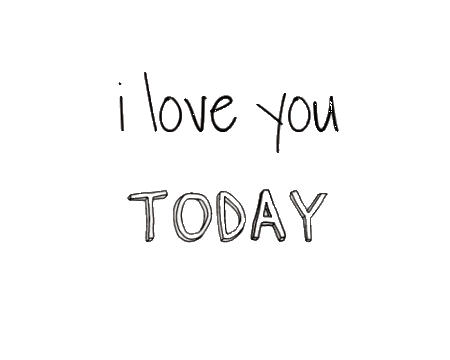 i love you
TODAY